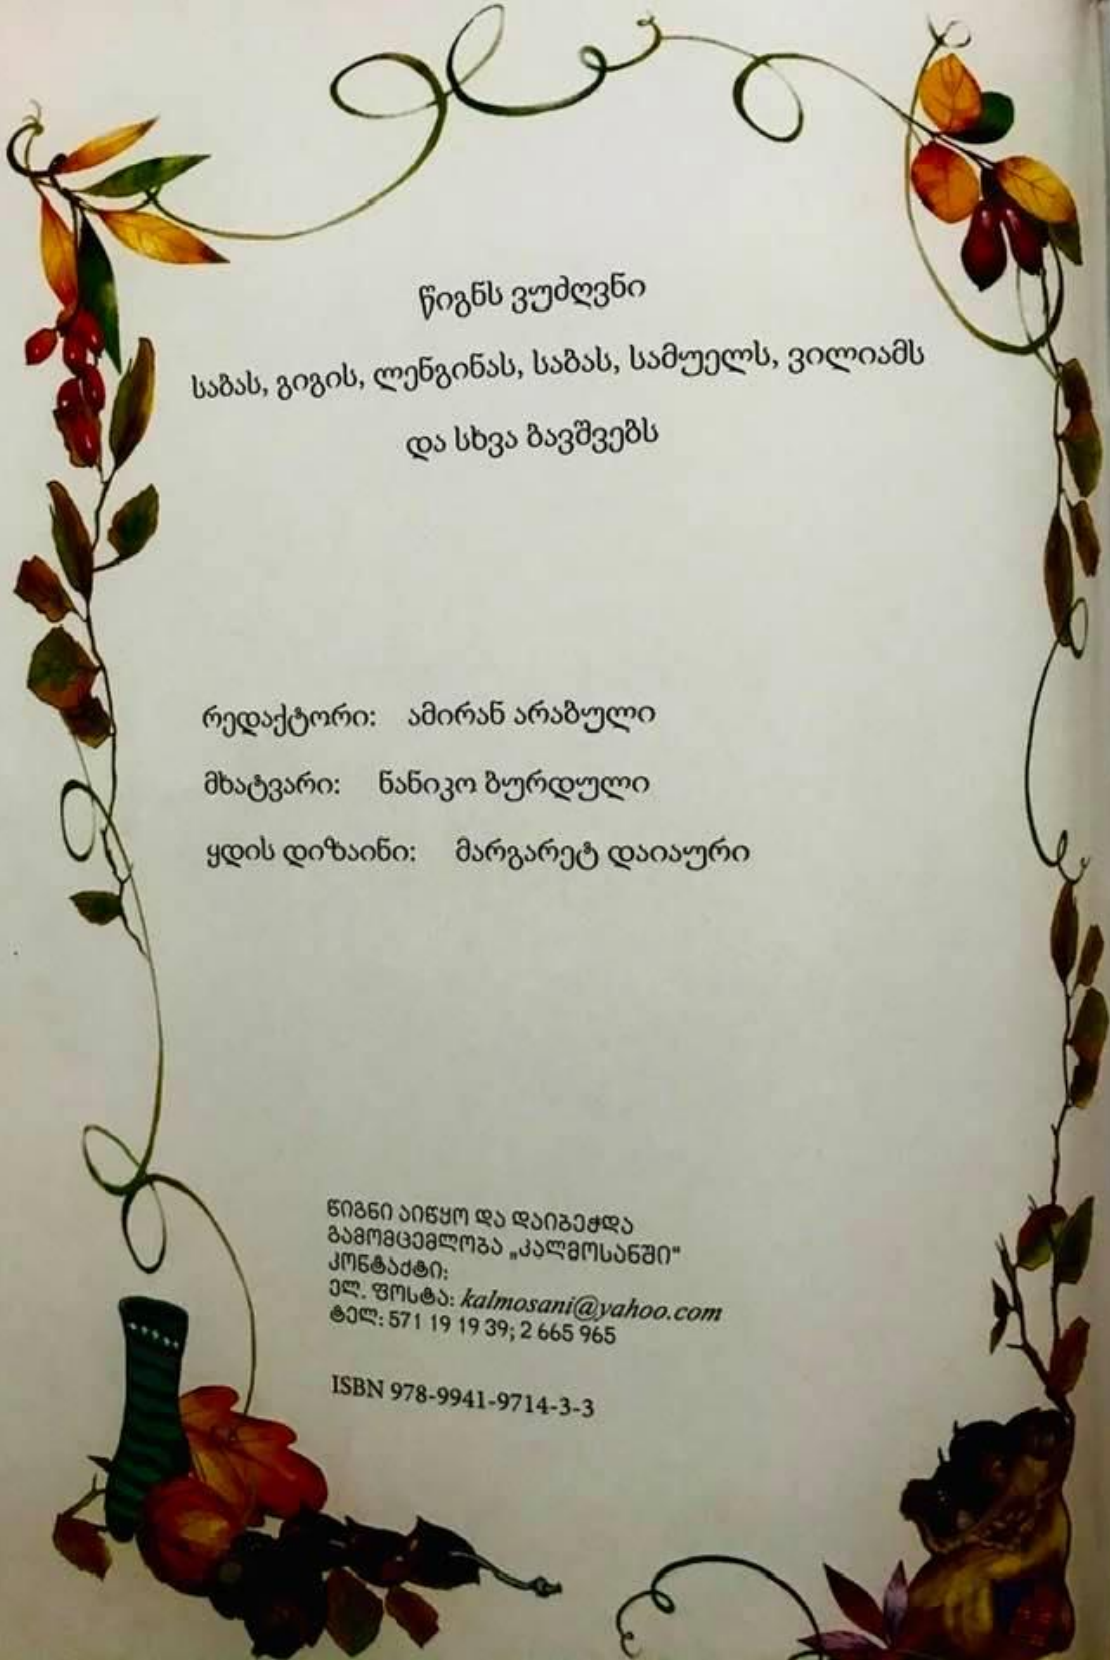 წიგნს ვუძღვნი
საბას, გიგის, ლენგინას, საბას, სამუელს, ვილიამს
და სხვა ბავშვებს
რედაქტორი: ამირან არაბული
მხატვარი: ნანიკო ბურდული
ყდის დიზაინი: მარგარეტ დაიაური
წიგნი აიწყო და დაიბეჭდა
გამომცემლობა „კალმოსანში“
კონტაქტი:
ელ. ფოსტა: kalmosani@yahoo.com
ტელ: 571 19 19 39; 2 665 965
ISBN 978-9941-9714-3-3